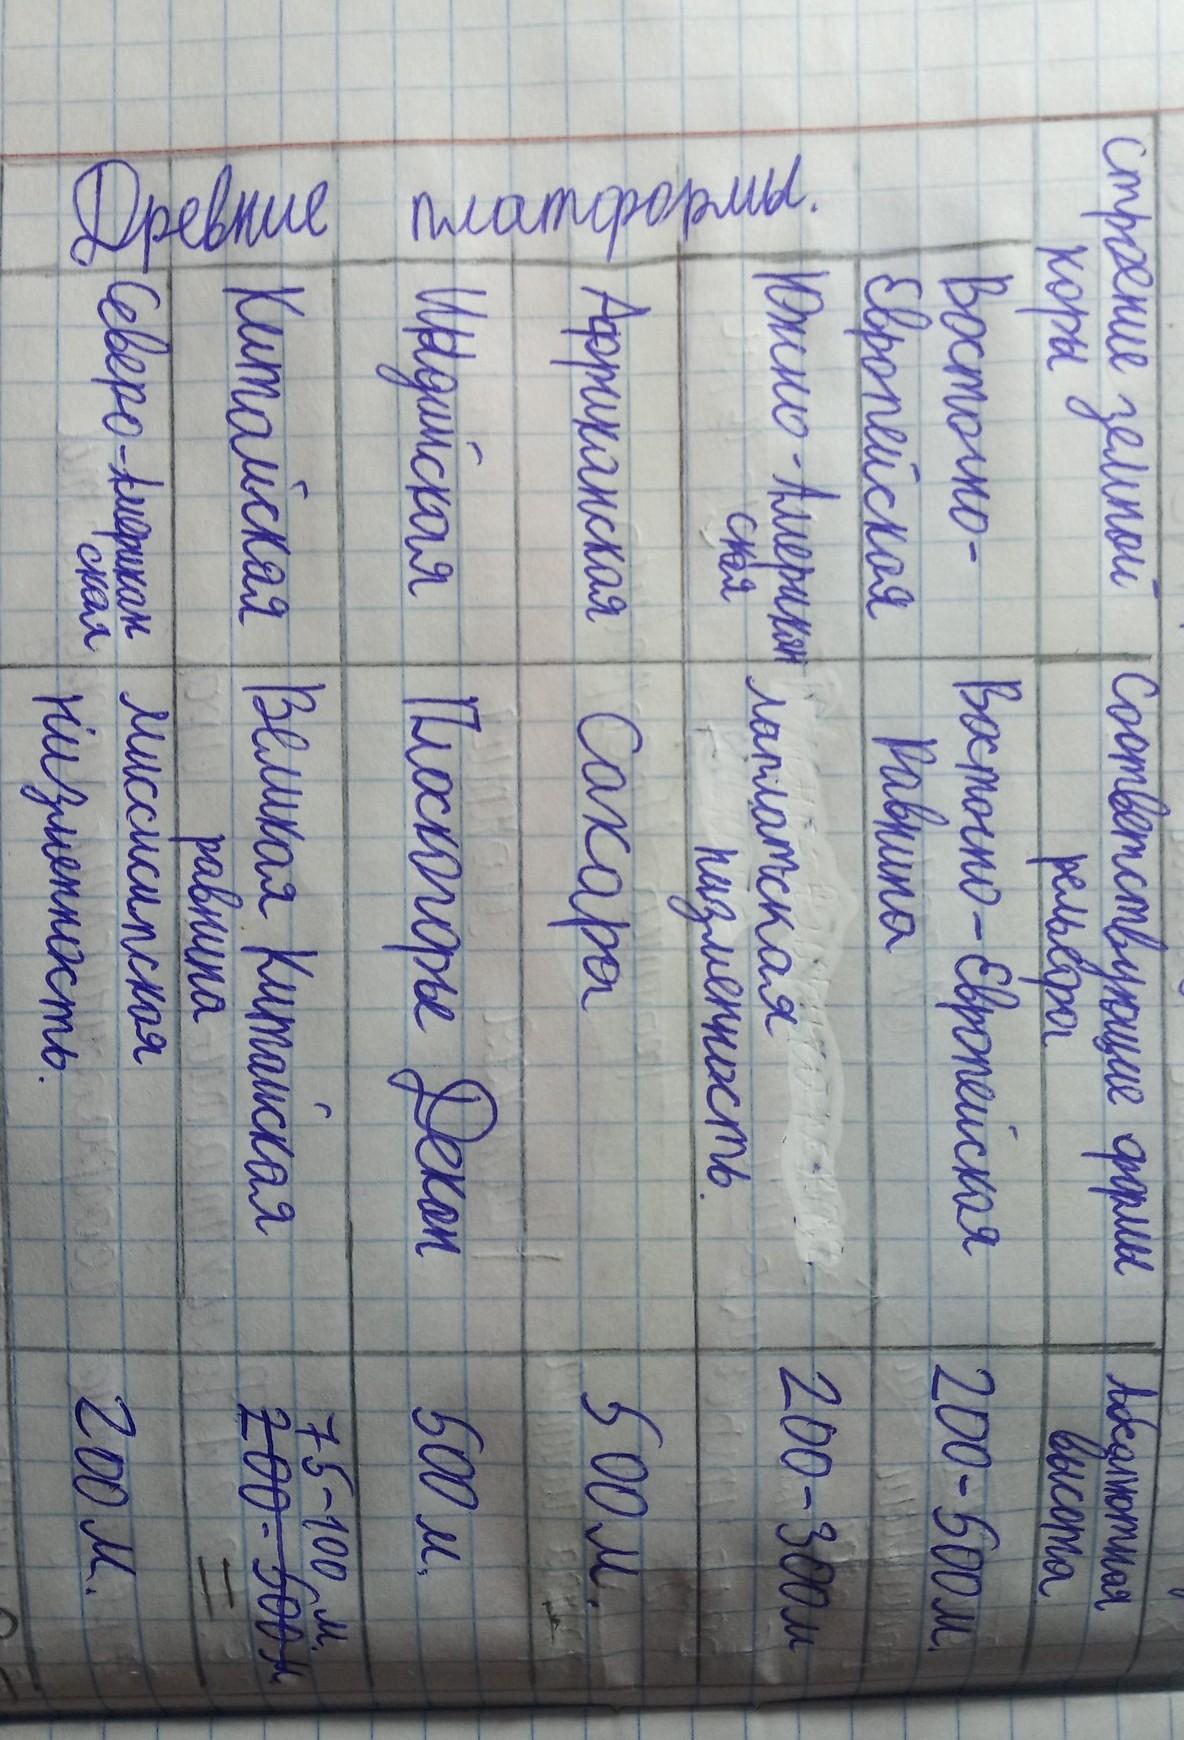 Строение земной
коры
Соответствующие формы
рельефа
Абсолютная
высота
Древние платформы.
Восточно-
Европейская
Восточно-Европейская
Равнина
200-500м.
Южно-Американ
ская
лаплатская
низменность.
200-300м
Африканская
Сахара
500м.
Индийская
Плоскогорье Декан
500 м.
Китайская
Великая Китайская
равнина
75-100 м.
200-500м
Северо-Американ
ская
Миссисипская
низменность.
200 м.